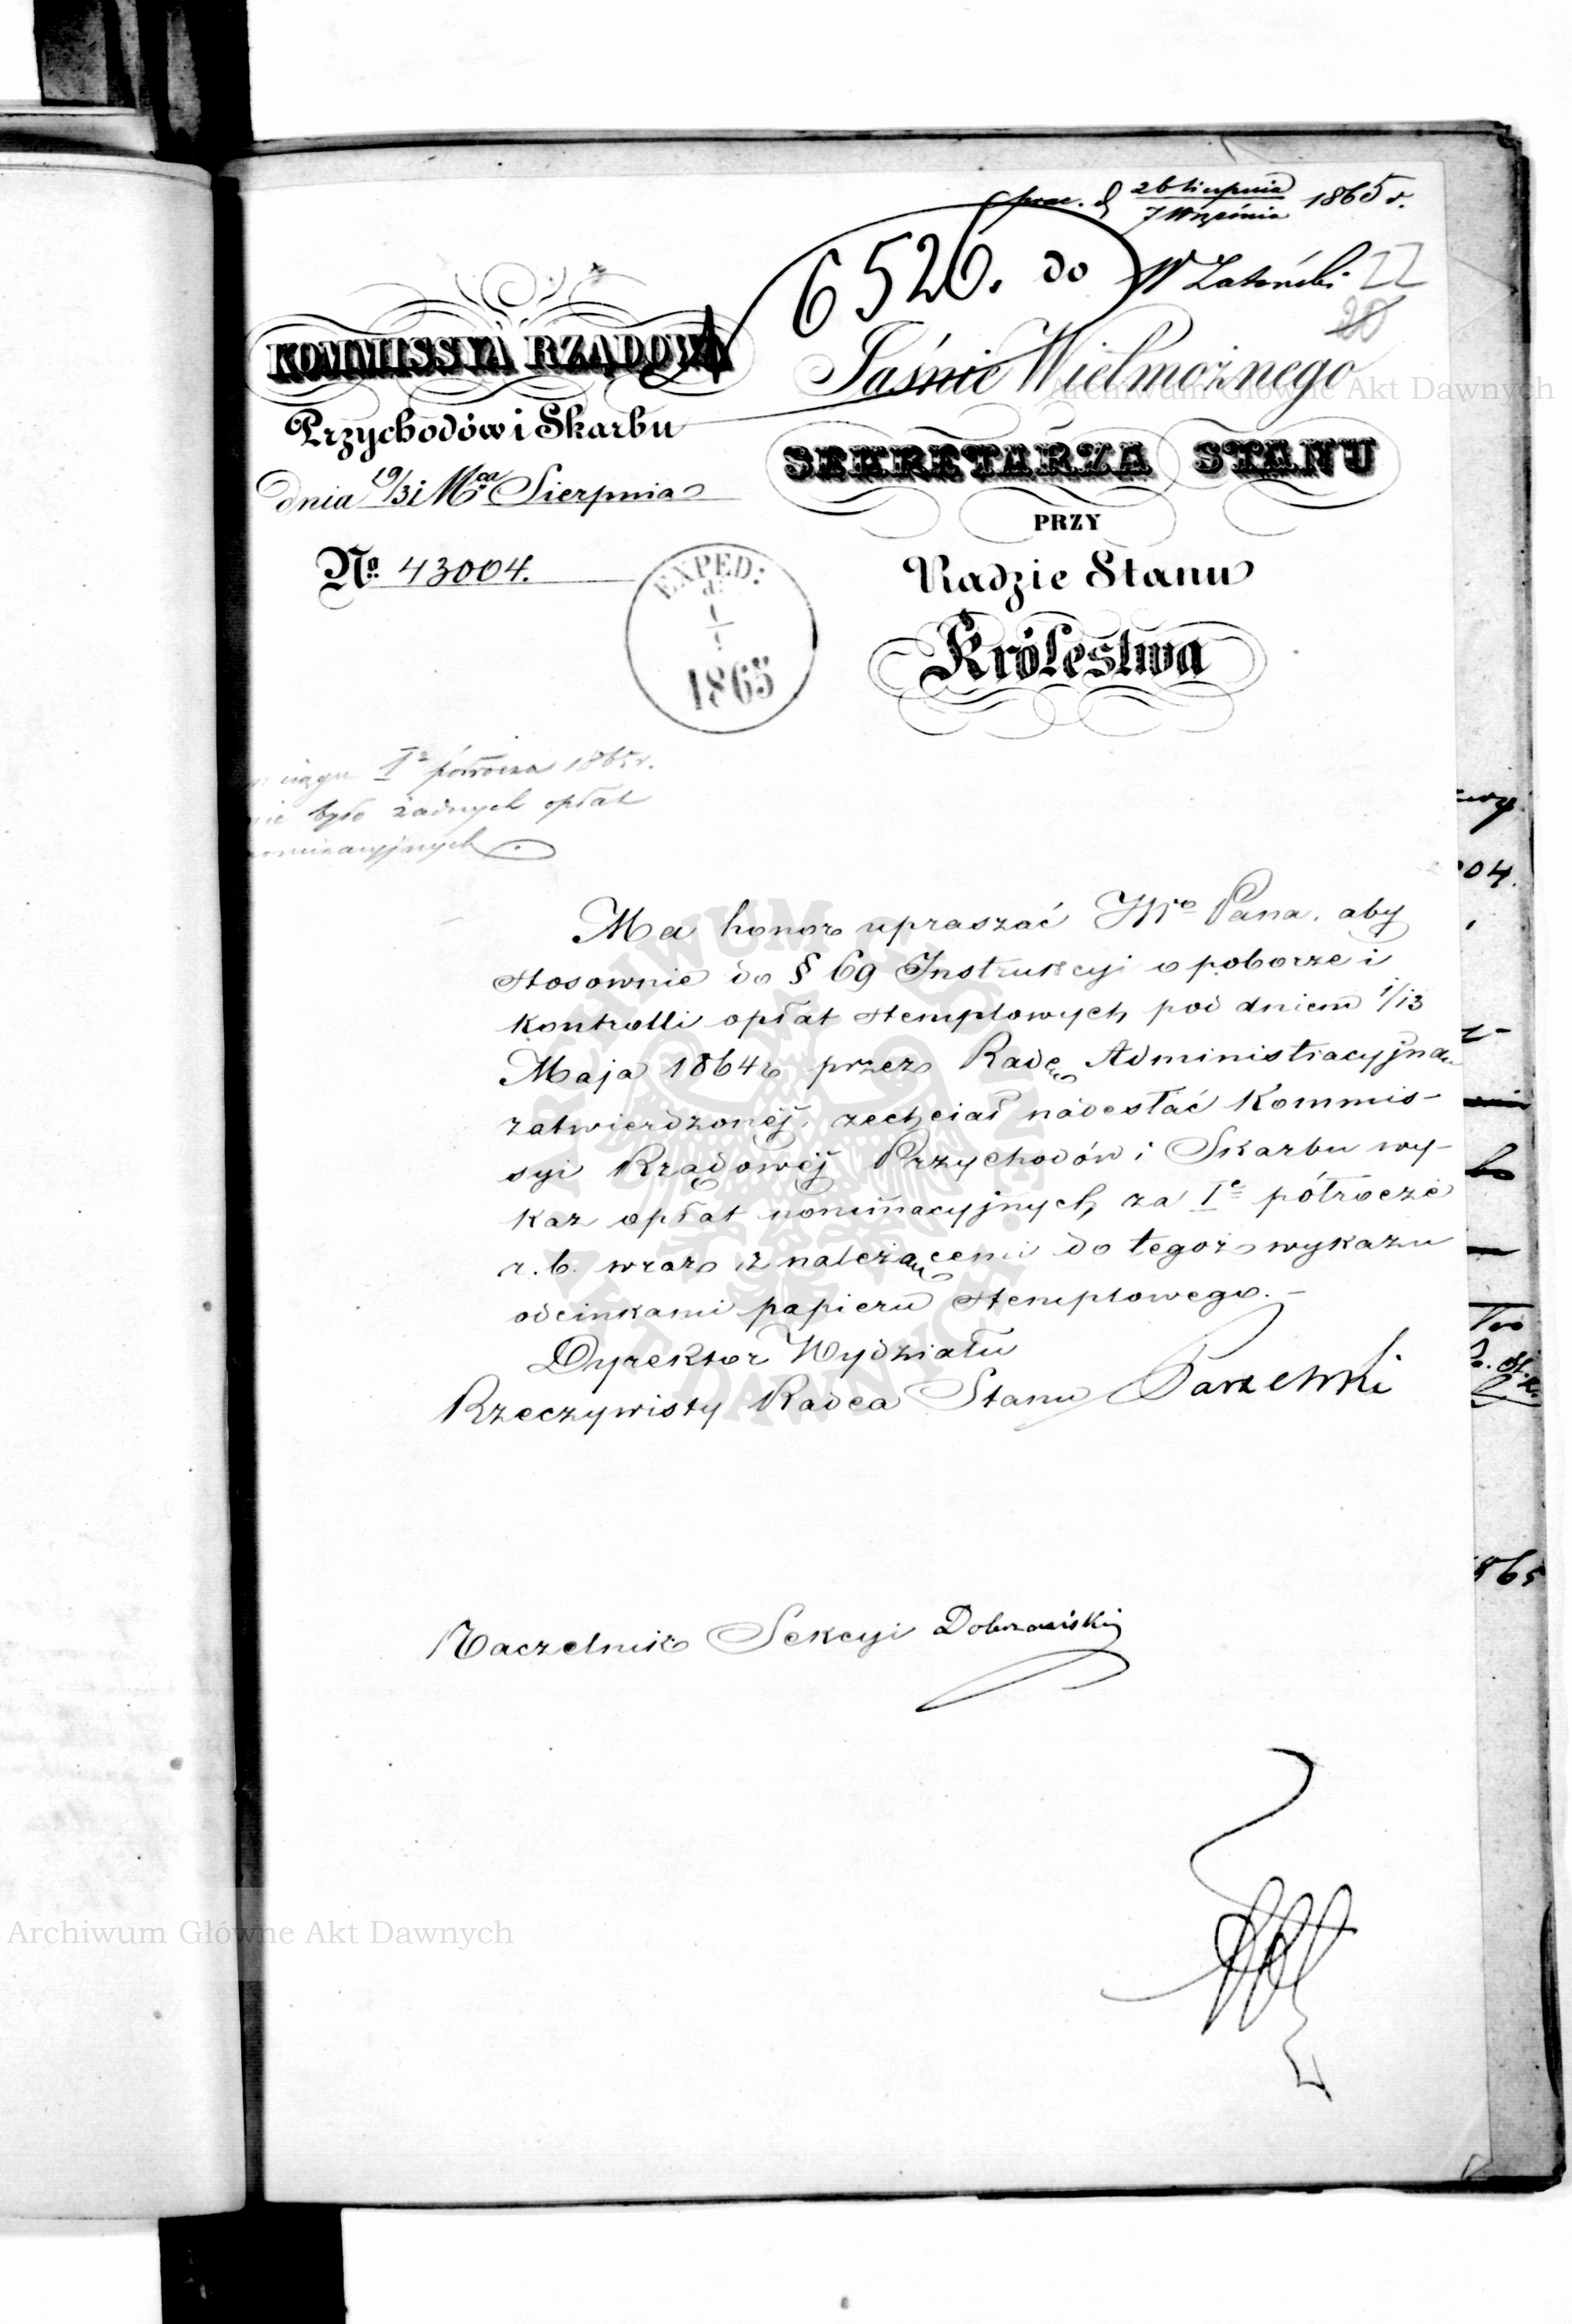 prez. d. 26 Sierpnia / 7 Września 1865 r.
6526. do W Zatoński 22
20
KOMMISSYA RZĄDOWA
Przychodów i Skarbu
dnia 19/31 Mca Sierpnia
No. 43004.
EXPED:
d.
1/1
1865
Jaśnie Wielmożnego
SEKRETARZA STANU
PRZY
Radzie Stanu
Królestwa
ciągu Io półrocza 1865 r.
nie było żadnych opłat
nominacyjnych
Ma honor upraszać JWo Pana, aby
stosownie do § 69 Instrukcyi o poborze i
kontrolli opłat stemplowych, pod dniem 1/13
Maja 1864 r. przez Radę Administracyjną
zatwierdzonéj, zechciał nadesłać Kommis-
syi Rządowéj Przychodów i Skarbu wy-
kaz opłat nominacyjnych, za Ie półrocze
r. b. wraz z należącemi do tegoż wykazu
odcinkami papieru stemplowego.-
Dyrektor Wydziału
Rzeczywisty Radca Stanu
Naczelnik Sekcyi Dobrzański
04.
865
Archiwum Główne Akt Dawnych
Archiwum Główne Akt Dawnych
ARCHIWUM GŁÓWNE AKT DAWNYCH